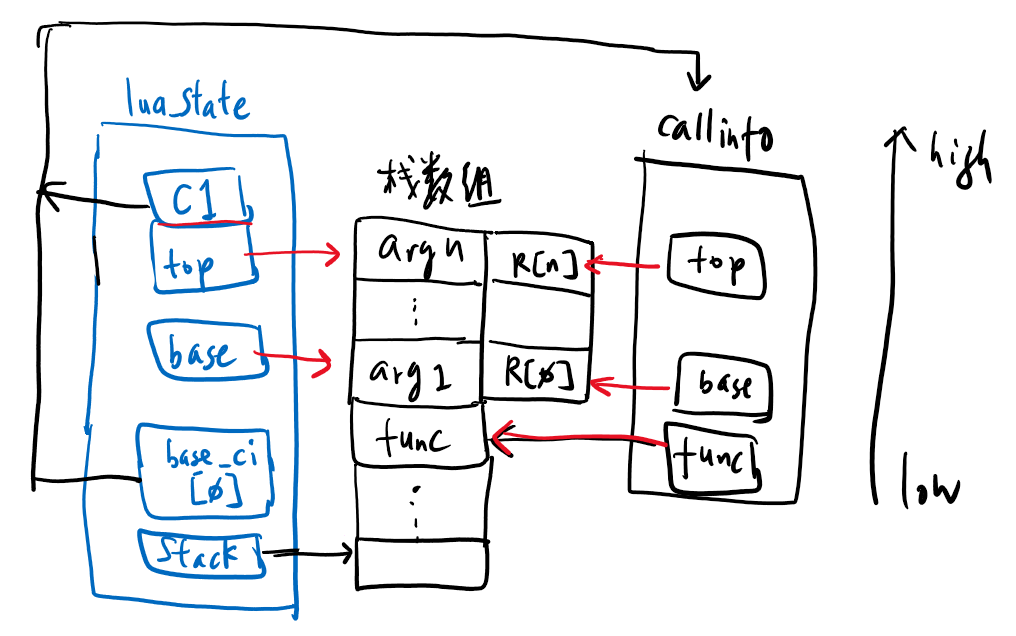 lua_state
C1
top
base
base_ci
[ø]
Stack
栈数组
argn
R[n]
⋮
arg1
R[ø]
func
⋮
callinfo
top
base
func
high
low